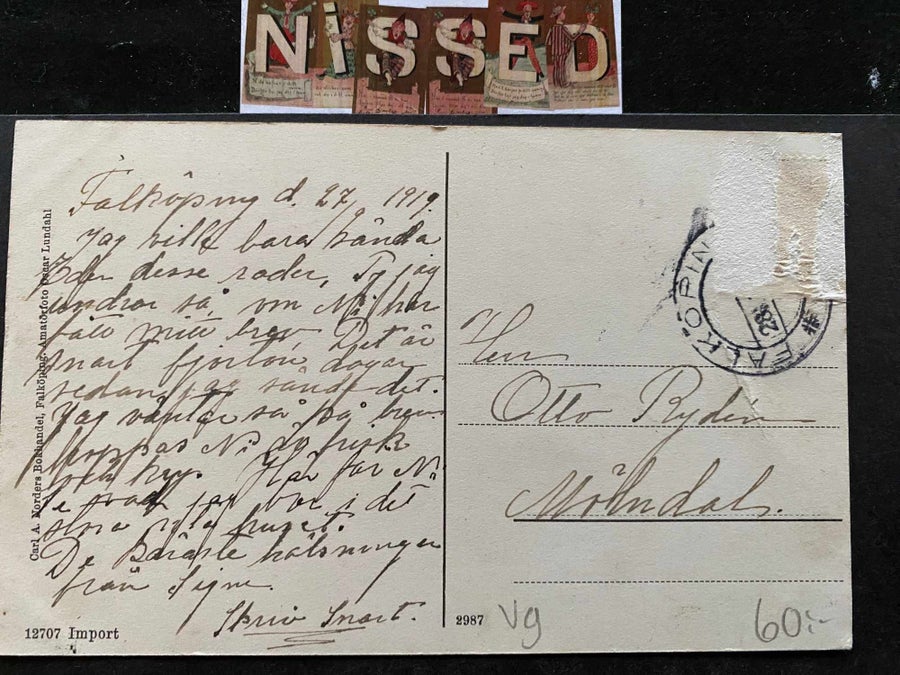 NISSED
Falköping d. 27/ 1919.
Jag ville bara sända
Eder desse rader, Ty jag
undrar så, om Ni har
fått mitt brev. Det är
snart fjorton dagar
sedan jag sände det.
Jag väntar så på brev.
Hoppas Ni är frisk
och kry. Här får Ni
se vad jag bor, i det
stora huset.
De käraste hälsningar
från Signe.
Skriv Snart.
Carl A. Norders Bokhandel, Falköping. Amatörfoto Oscar Lundahl
12707 Import
2987
FALKÖPIN
Herr
Otto Rydén
Mölndal.
Vg
60:-